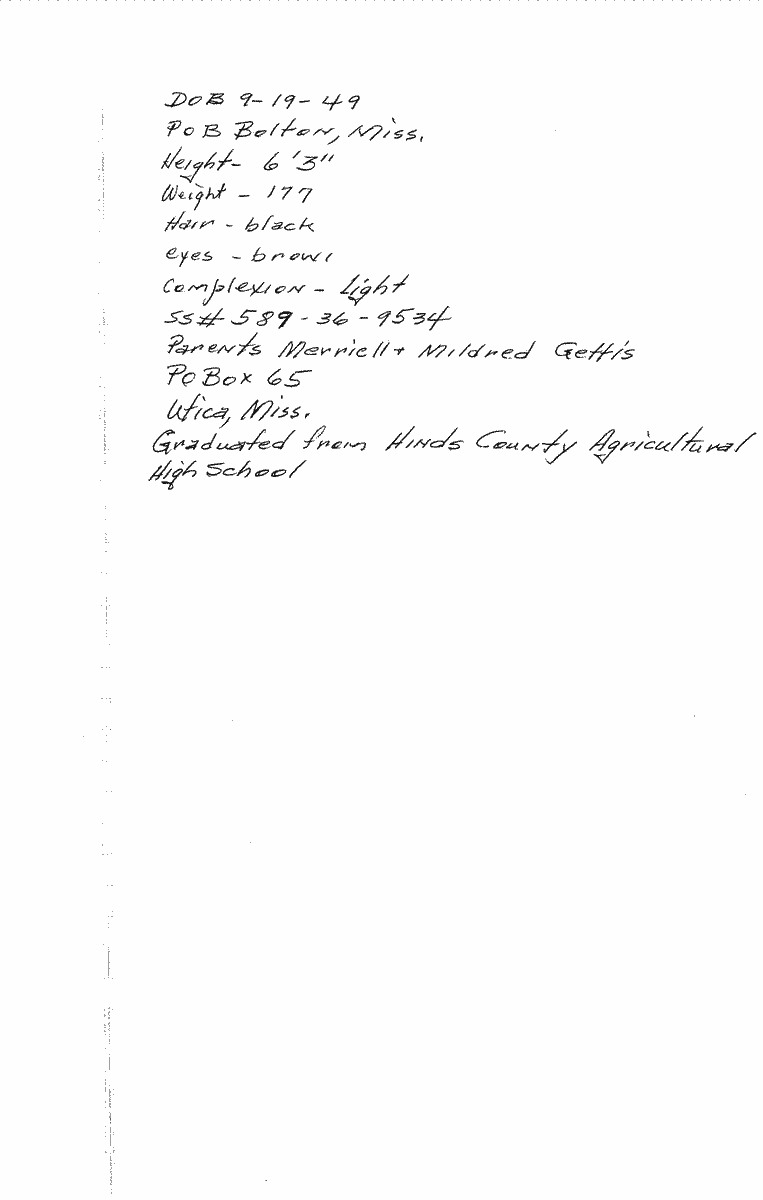 DOB 9-19-49
POB Bolton, Miss.
Height- 6'3"
Weight - 177
Hair - black
eyes - brown
Complexion - Light
SS# 589-36-9534
Parents Merriell + Mildred Gettis
PO Box 65
Utica, Miss.
Graduated from Hinds County Agricultural
High School